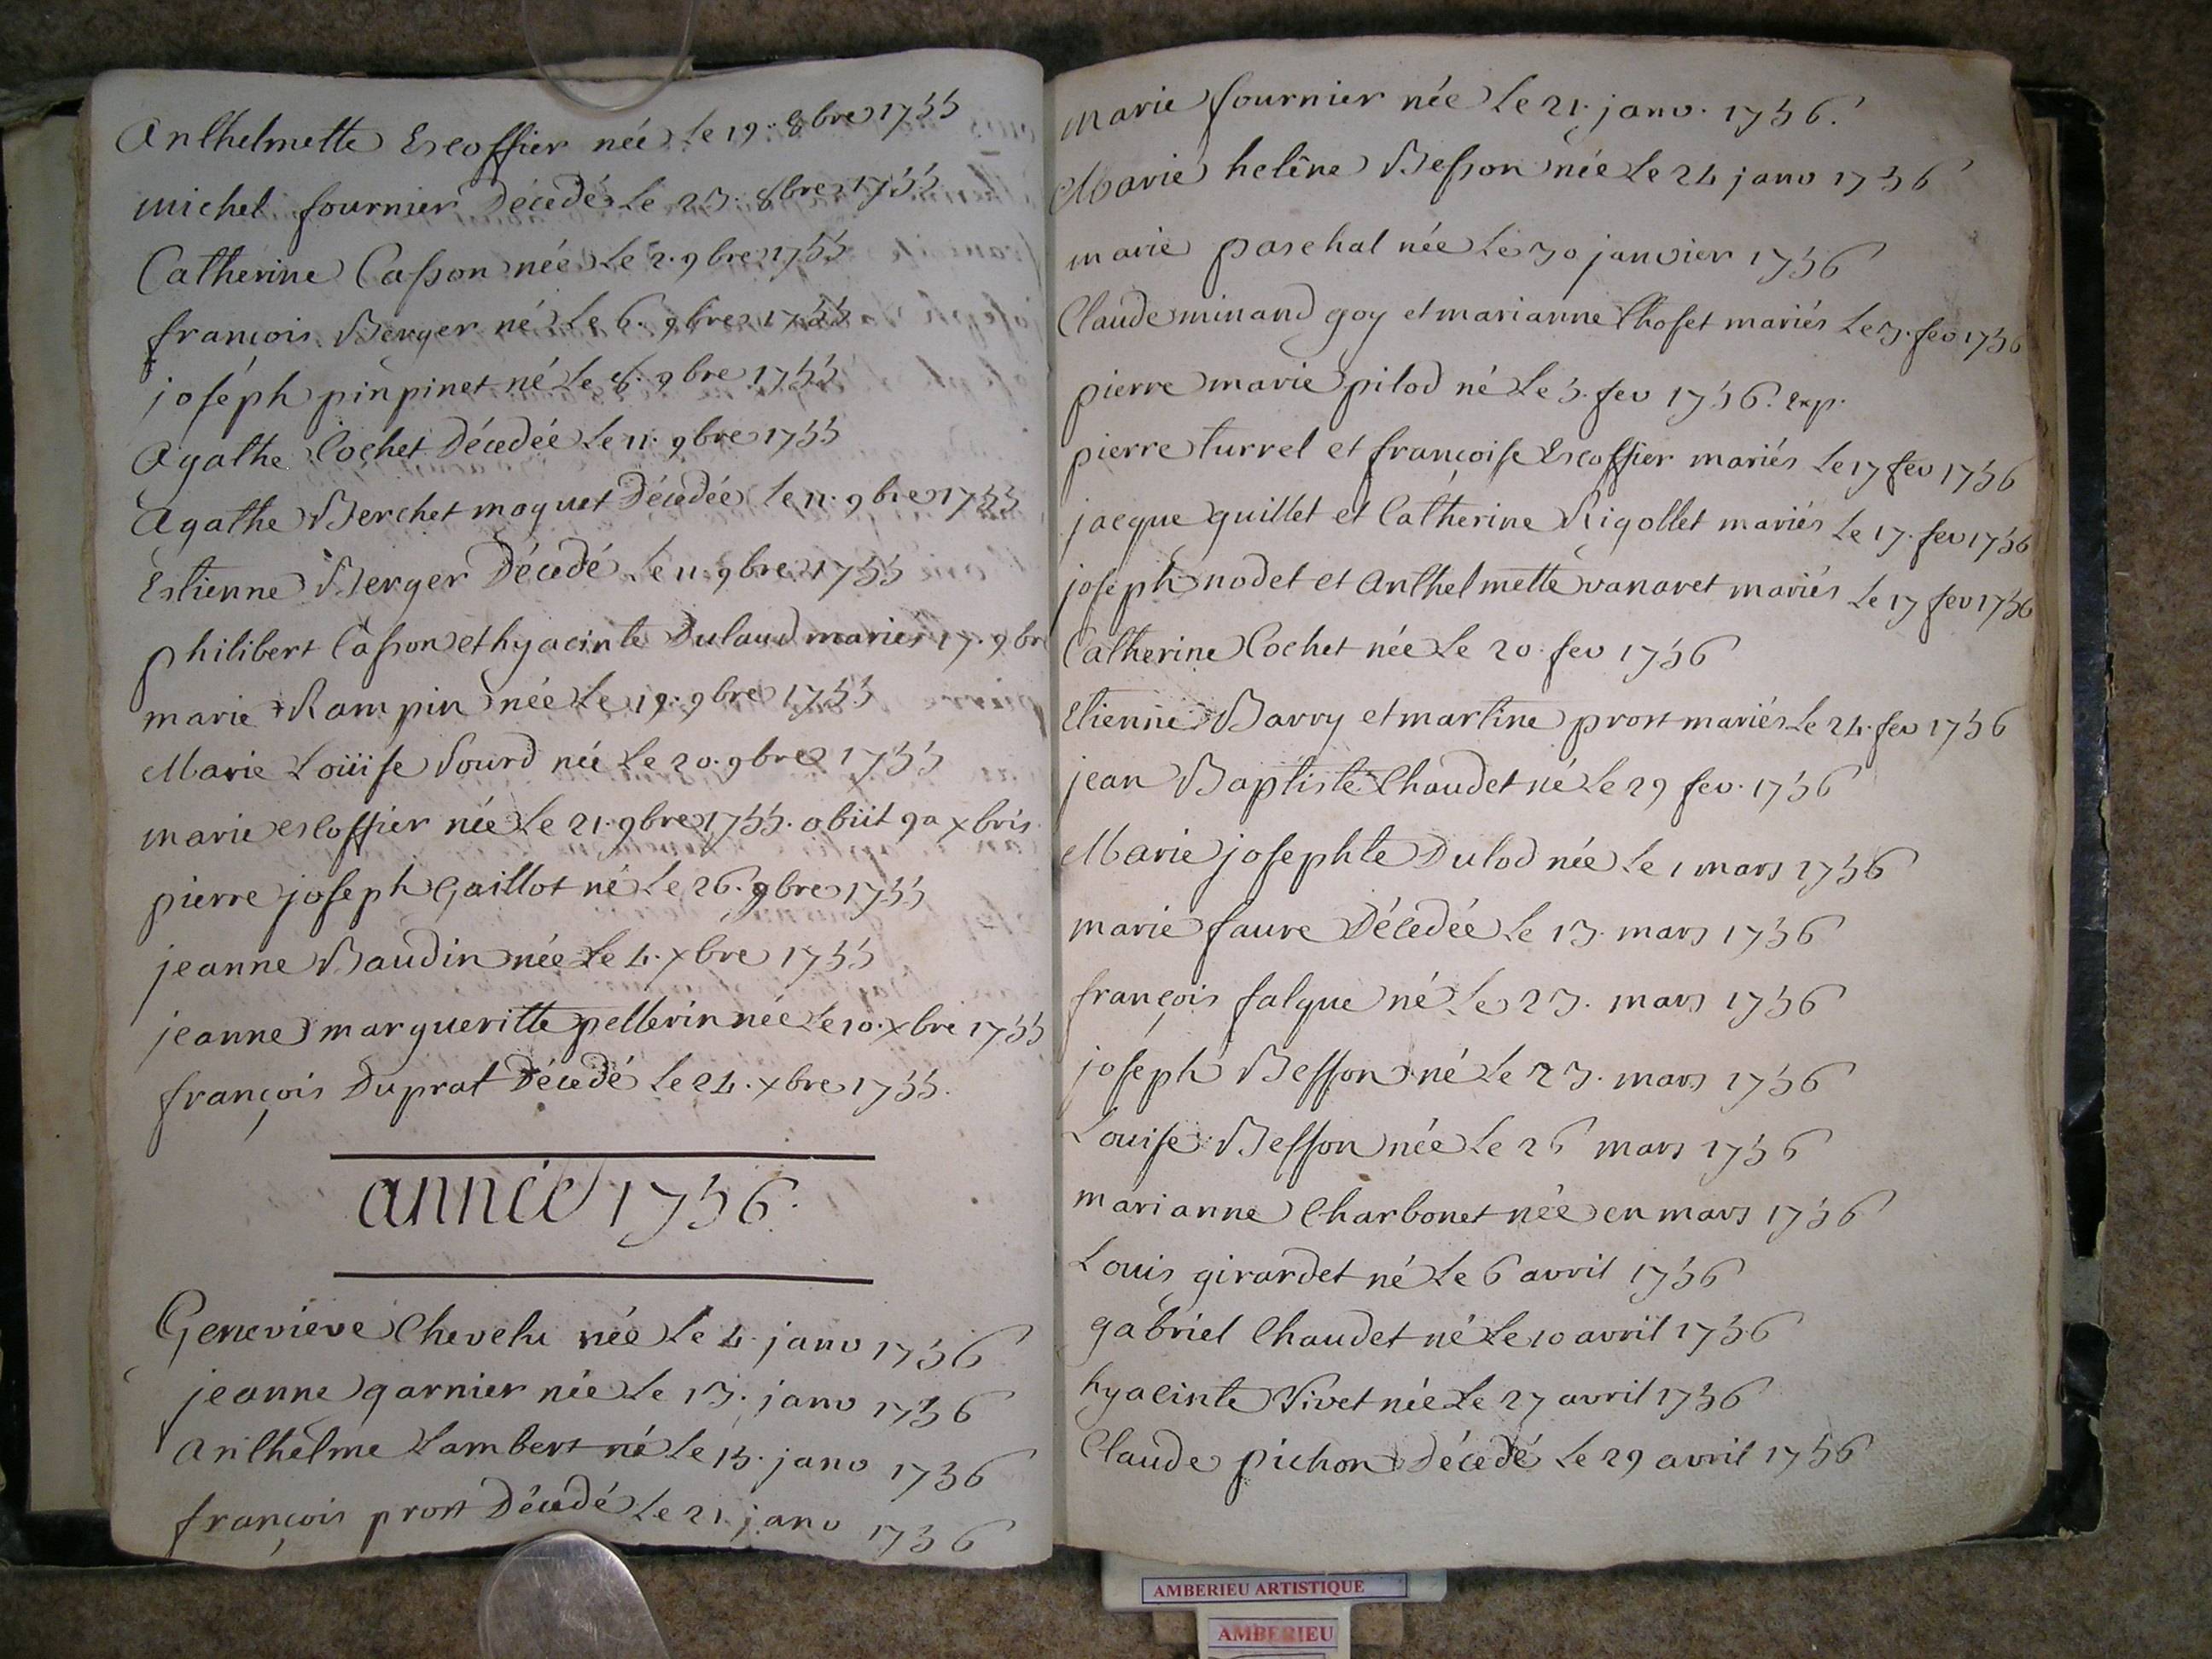 Anthelmette Escoffier née Le 19. 8bre 1755
michel fournier Décedé Le 23. 8bre 1755
Catherine Casson née Le 2. 9bre 1755
françois Berger né Le 6. 9bre 1755
joséph pinpinet né Le 8. 9bre 1755
Agathe Cochet Décedée Le 11. 9bre 1755
Agathe Berchet moquet Décedée Le 11. 9bre 1755
Estienne Berger Décedé Le 11. 9bre 1755
philibert Casson et hyacinte Dulaud mariés 17. 9br
marie Rampin née Le 19. 9bre 1755
Marie Loüise Sourd née Le 20. 9bre 1755
marie escoffier née Le 21. 9bre 1755. obiit 9a xbris
pierre joseph Gaillot né Le 26. 9bre 1755
jeanne Baudin née Le 4. xbre 1755
jeanne margueritte pellerin née Le 10. xbre 1755
françois Duprat Décedé Le 24. xbre 1755.
année 1756.
Geneviéve Chevelu née Le 4. janv 1756
jeanne garnier née Le 13. janv 1756
Anthelme Lambert né Le 15. janv 1756
françois prost Décedé Le 21. janv 1756
marie fournier née Le 21. janv. 1756.
Marie heléne Besson née Le 24 janv 1756
marie paschal née Le 30 janvier 1756
Claude minand goy et marianne Choset mariés Le 3. fev 1756
pierre marie pilod né Le 5. fev 1756. exp.
pierre turrel et françoise Escoffier mariés Le 17 fev 1756
jacque guillet et Catherine Rigollet mariés Le 17. fev 1756
joseph nodet et Anthelmette vanaret mariés Le 17 fev 1756
Catherine Cochet née Le 20. fev 1756
Etienne Barry et martine prost mariés Le 24. fev 1756
jean Baptiste Chaudet né Le 29 fev. 1756
Marie josephte Dulod née Le 1 mars 1756
marie faure Décedée Le 13. mars 1756
françois falque né Le 23. mars 1756
joseph Besson né Le 23. mars 1756
Louise Besson née Le 26 mars 1756
marianne Charbonet née en mars 1756
Louis girardet né Le 6 avril 1756
gabriel Chaudet né Le 10 avril 1756
hyacinte Vivet née Le 27 avril 1756
Claude pichon Décedé Le 29 avril 1756
AMBERIEU ARTISTIQUE
AMBERIEU